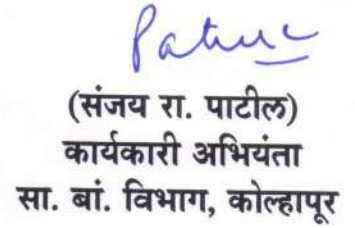 (संजय रा. पाटील)
कार्यकारी अभियंता
सा. बां. विभाग, कोल्हापूर